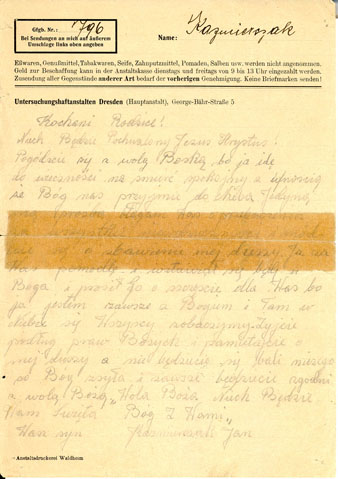 Gfgb. Nr.: 1796
Bei Sendungen an mich auf äußerem
Umschlage links oben angeben
Name: Kaźmierczak
Eßwaren, Genußmittel, Tabakwaren, Seife, Zahnputzmittel, Pomaden, Salben usw. werden nicht angenommen.
Geld zur Beschaffung kann in der Anstaltskasse dienstags und freitags von 9 bis 13 Uhr eingezahlt werden.
Zusendung aller Gegenstände anderer Art bedarf der vorherigen Genehmigung. Keine Briefmarken senden!
Untersuchungshaftanstalten Dresden (Hauptanstalt), George-Bähr-Straße 5
Kochani Rodzice!
Niech Będzie Pochwalony Jezus Chrystus!
Pogódźcie się z wolą Boską, bo ja idę
do wieczności na śmierć spokojny z ufnością
że Bóg nas przyjmie do nieba Jedyną
o zbawienie mej duszy Ja za
Was pomodlę i wstawiał się będę u
Boga i prosił Go o szczęście dla Was bo
ja jestem zawsze z Bogiem i Tam w
Niebie się Wszyscy zobaczymy. Żyjcie
według praw Bożych i pamiętajcie o
mej duszy a nie będziecie się bali niczego
co Bóg zsyła i zawsze bądźcie zgodni
z wolą Bożą, Wola Boża Niech Będzie
Wam Święta Bóg Z Wami,
Wasz syn Kaźmierczak Jan
Anstaltsdruckerei Waldheim